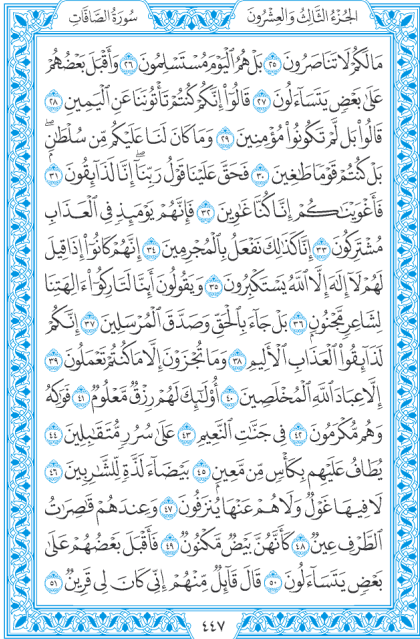 الجُزْءُ الثَّالِثُ وَالْعِشْرُونَ سُورَةُ الصَّافَّاتِ
مَا لَكُمْ لَا تَنَاصَرُونَ ٢٥ بَلْ هُمُ الْيَوْمَ مُسْتَسْلِمُونَ ٢٦ وَأَقْبَلَ بَعْضُهُمْ
عَلَىٰ بَعْضٍ يَتَسَاءَلُونَ ٢٧ قَالُوا إِنَّكُمْ كُنْتُمْ تَأْتُونَنَا عَنِ الْيَمِينِ ٢٨
قَالُوا بَلْ لَمْ تَكُونُوا مُؤْمِنِينَ ٢٩ وَمَا كَانَ لَنَا عَلَيْكُمْ مِنْ سُلْطَانٍ
بَلْ كُنْتُمْ قَوْمًا طَاغِينَ ٣٠ فَحَقَّ عَلَيْنَا قَوْلُ رَبِّنَا إِنَّا لَذَائِقُونَ ٣١
فَأَغْوَيْنَاكُمْ إِنَّا كُنَّا غَاوِينَ ٣٢ فَإِنَّهُمْ يَوْمَئِذٍ فِي الْعَذَابِ
مُشْتَرِكُونَ ٣٣ إِنَّا كَذَٰلِكَ نَفْعَلُ بِالْمُجْرِمِينَ ٣٤ إِنَّهُمْ كَانُوا إِذَا قِيلَ
لَهُمْ لَا إِلَٰهَ إِلَّا اللَّهُ يَسْتَكْبِرُونَ ٣٥ وَيَقُولُونَ أَئِنَّا لَتَارِكُو آلِهَتِنَا
لِشَاعِرٍ مَجْنُونٍ ٣٦ بَلْ جَاءَ بِالْحَقِّ وَصَدَّقَ الْمُرْسَلِينَ ٣٧ إِنَّكُمْ
لَذَائِقُو الْعَذَابِ الْأَلِيمِ ٣٨ وَمَا تُجْزَوْنَ إِلَّا مَا كُنْتُمْ تَعْمَلُونَ ٣٩
إِلَّا عِبَادَ اللَّهِ الْمُخْلَصِينَ ٤٠ أُولَٰئِكَ لَهُمْ رِزْقٌ مَعْلُومٌ ٤١ فَوَاكِهُ
وَهُمْ مُكْرَمُونَ ٤٢ فِي جَنَّاتِ النَّعِيمِ ٤٣ عَلَىٰ سُرُرٍ مُتَقَابِلِينَ ٤٤
يُطَافُ عَلَيْهِمْ بِكَأْسٍ مِنْ مَعِينٍ ٤٥ بَيْضَاءَ لَذَّةٍ لِلشَّارِبِينَ ٤٦
لَا فِيهَا غَوْلٌ وَلَا هُمْ عَنْهَا يُنْزَفُونَ ٤٧ وَعِنْدَهُمْ قَاصِرَاتُ
الطَّرْفِ عِينٌ ٤٨ كَأَنَّهُنَّ بَيْضٌ مَكْنُونٌ ٤٩ فَأَقْبَلَ بَعْضُهُمْ عَلَىٰ
بَعْضٍ يَتَسَاءَلُونَ ٥٠ قَالَ قَائِلٌ مِنْهُمْ إِنِّي كَانَ لِي قَرِينٌ ٥١
٤٤٧